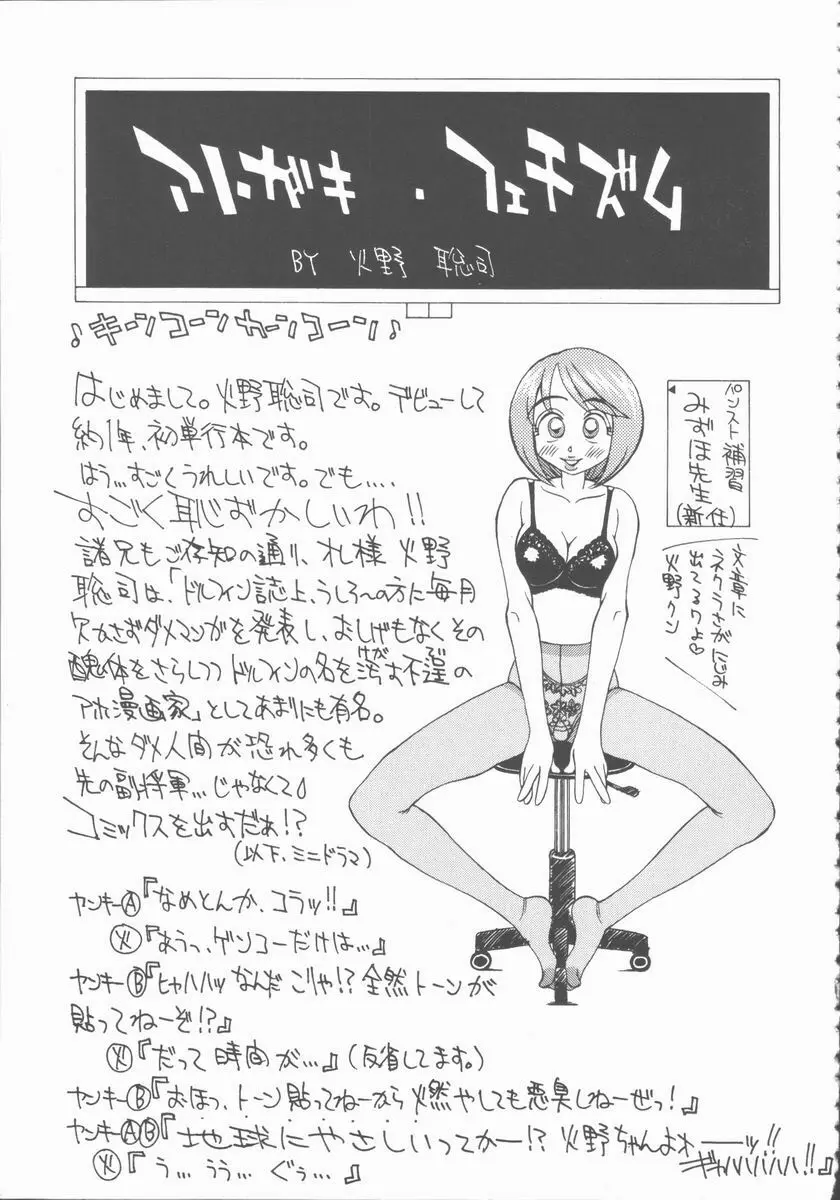 フューチャー・サキニア
BY 火野 聡司
♪キーンコーンカーンコーン♪
はじめまして。火野聡司です。デビューして
約1年、初単行本です。
はう…すごくうれしいです。でも….
すごく恥ずかしいわ!!
諸兄もご存知の通り、オレ様 火野
聡司は、「ドルフィン誌上、うしろへの方に毎月
欠かさずダメマンガを発表し、おしげもなくその
醜体をさらしつつドルフィンの名を汚す不逞の
けが
アホ漫画家」としてあまりにも有名。
そんなダメ人間が恐れ多くも
先の副将軍…じゃなくて♪
コミックスを出すだぁ!?
(以下、ミニドラマ)
ヤンキーⒶ『なめとんか、コラッ!!』
㊋『あうっ、ゲンコーだけは…』
ヤンキーⒷ『ヒャハハッ なんだ こりゃ!? 全然トーンが
貼ってねーぞ!?』
㊋『だって時間が…』(反省してます。)
ヤンキーⒷ『おほっ、トーン貼ってねーから燃やしても悪臭しねーぜっ!』
ヤンキーⒶⒷ『地球にやさしいってかー!? 火野ちゃんよおーーッ!!
ギャハハハハ!!』
㊋『う… うう… ぐぅ…』
パンスト補習
みずほ先生
(新任)
文章に
ネクラさがにじみ
出てるわよ♡
火野クン